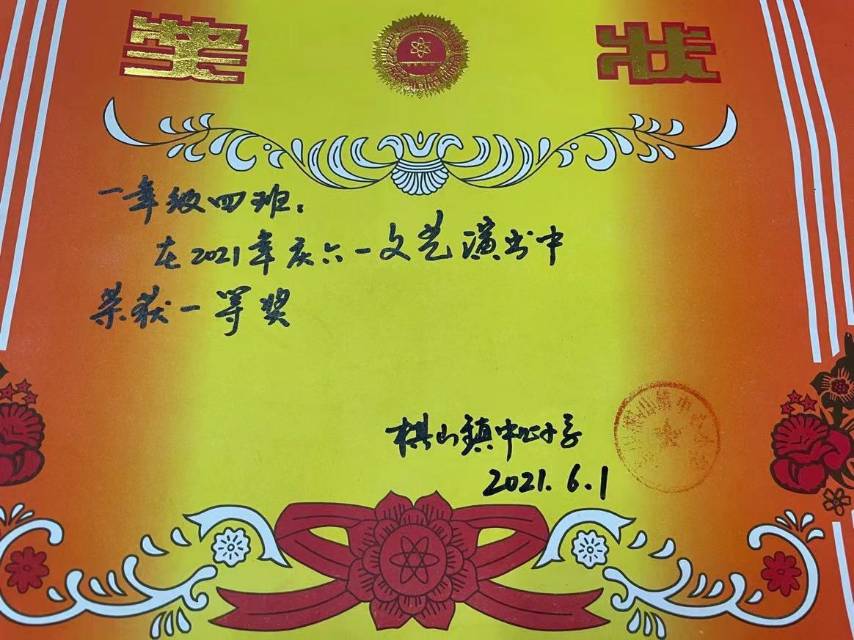 奖 状
一年级四班：
在2021年庆六一文艺演出中
荣获一等奖
棋山镇中心小学
2021.6.1